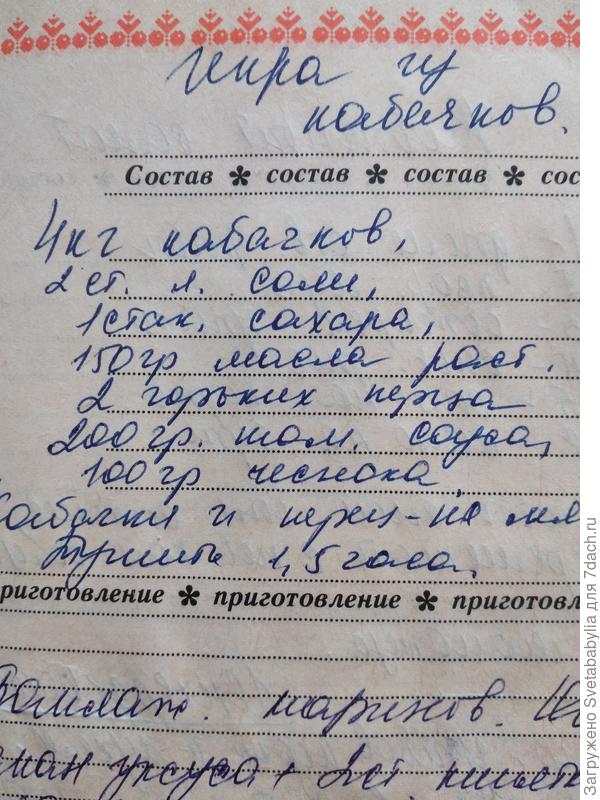 Икра из
кабачков.
Состав * состав * состав * сос
4кг кабачков,
2 ст. л. соли,
1 стак. сахара,
150 гр масла раст.
2 горьких перца
200 гр. том. соуса,
100 гр чеснока
Кабачки и перец - на мя
Тушить 1,5 часа.
риготовление * приготовление * приготовл
маринов.
уксуса + 2 ст.
Загружено Svetababylia для 7dach.ru